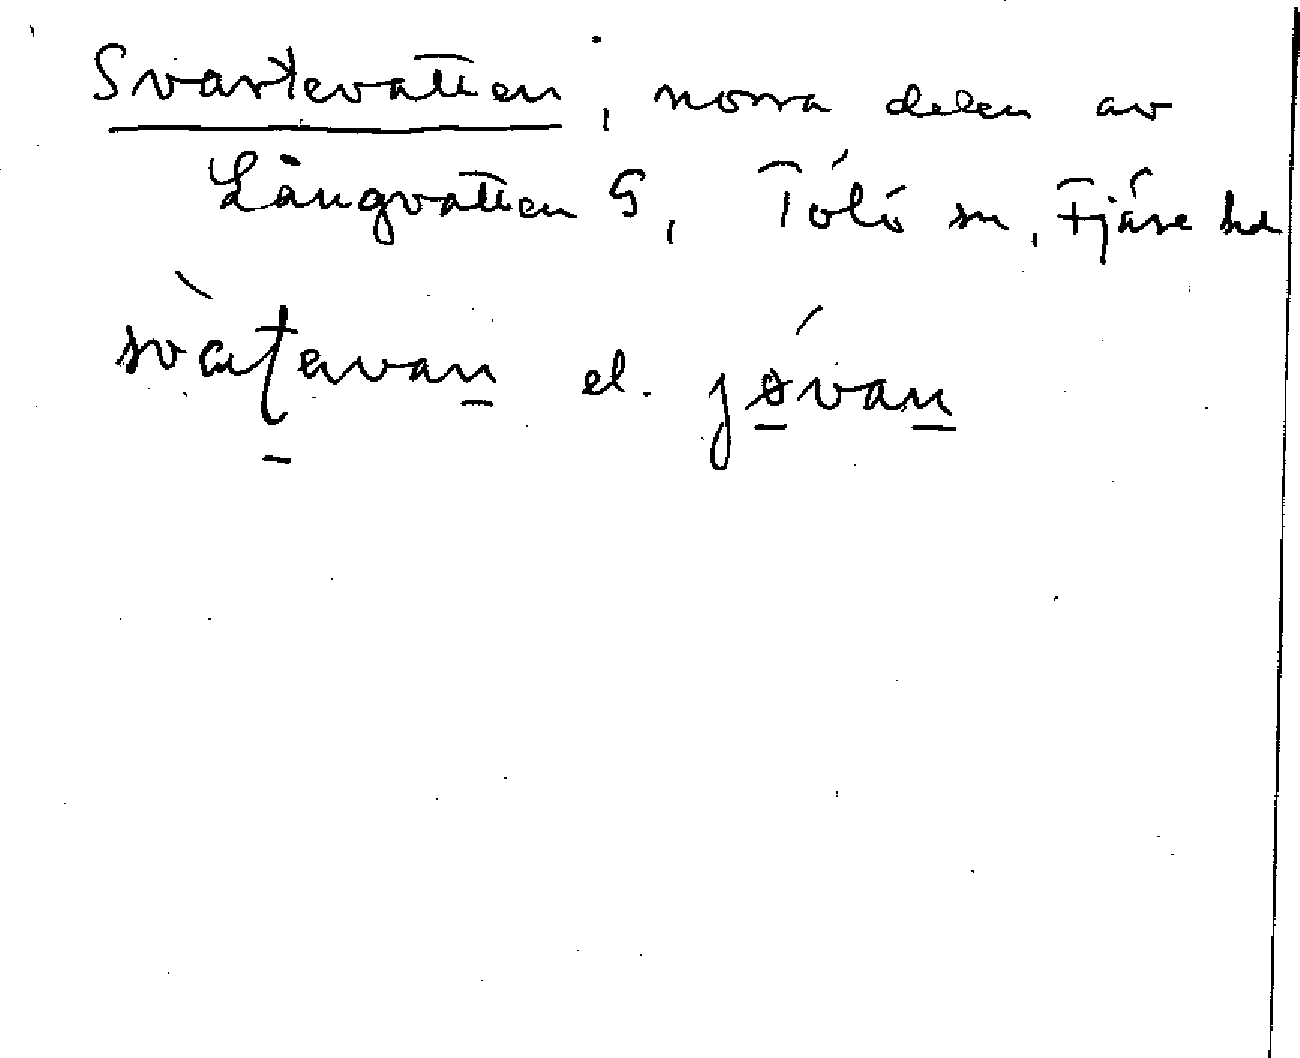 Svartevatten, norra delen av
Långvatten G, Tölö sn, Fjäre hd
svàt̠avan̠ el. jǿ̠van̠